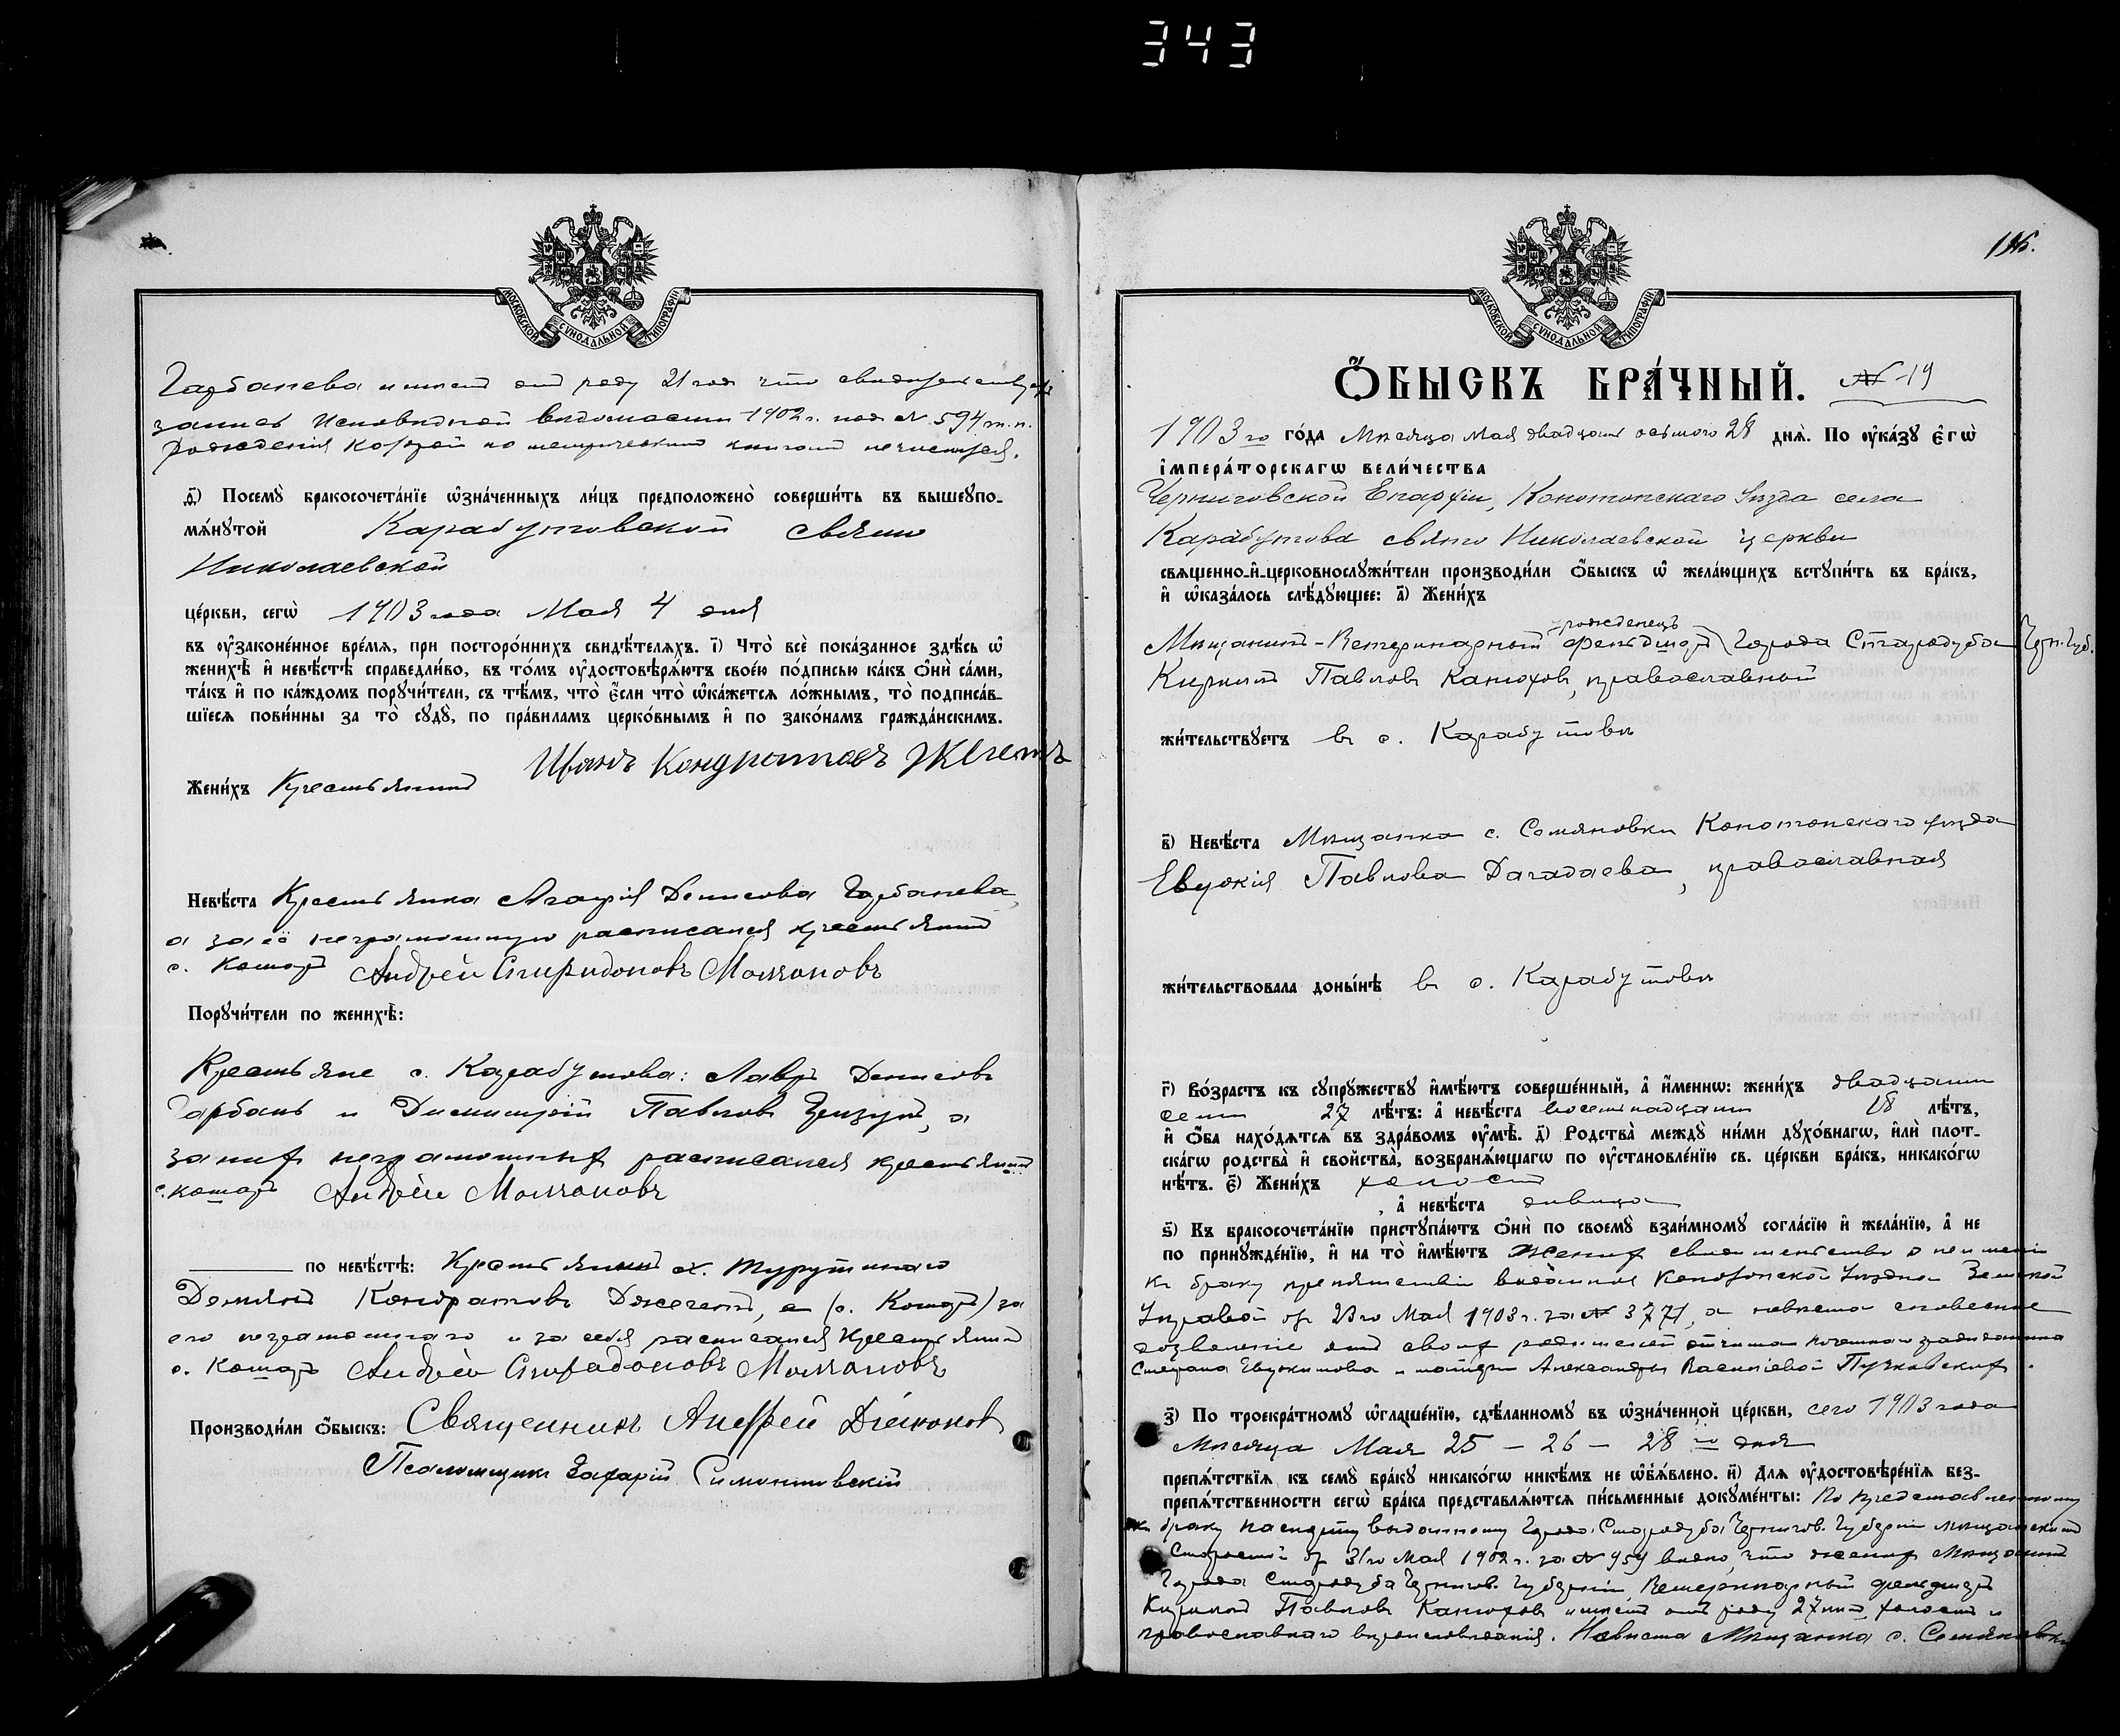 343
МОСКОВСКОЙ СѴНОДАЛЬНОЙ ТИПОГРАФІИ
Гарбанева имеет от роду 21 год что свидетельствует
запись Исповедной ведомости 1902 г. под № 594 т. п.
рождения которой по метрическим книгам не числится.
д҃) Посемꙋ̀ бракосочета́нїе ѡ҆зна́ченныхъ ли́цъ предположено̀ соверши́ть въ вышеꙋпо-
мѧ́нꙋтой Карабутовской свято
Николаевской
це́ркви, сегѡ̀ 1903 года Мая 4 дня
въ ᲂу҆законе́нное вре́мѧ, при посторо́ннихъ свидѣ́телѧхъ. і҃) Что̀ всѐ пока́занное здѣ́сь ѡ҆
женихѣ̀ и҆ невѣ́стѣ справедли́во, въ то́мъ ᲂу҆достовѣрѧ́ютъ свое́ю по́дписью ка́къ ѻ҆нѝ са́ми,
та́къ и҆ по ка́ждомъ порꙋчи́тели, съ тѣ́мъ, что̀ є҆́сли что̀ ѡ҆ка́жетсѧ ло́жнымъ, то̀ подписа́в-
шїесѧ пови́нны за то̀ сꙋдꙋ̀, по пра́виламъ церко́внымъ и҆ по зако́намъ гражда́нскимъ.
Жени́хъ Крестьянинъ Иванъ Кондратовъ
Невѣ́ста Крестьянка Агафія Денисова Гарбанева,
а за её неграмотную расписался крестьянин
с. Кошар Андрей Спиридоновъ Молчановъ
Порꙋчи́тели по женихѣ̀:
Крестьяне с. Карабутова: Лавр Денисов
Гарбань и Димитрий Павлов, а
за них неграмотных расписался крестьянин
с. Кошар Андрей Молчановъ
по невѣ́стѣ: Крестьянин х.
Демьян Кондратов, а (с. Кошар) за
его неграмотнаго и за себя расписался Крестьянин
с. Кошар Андрей Спирадоновъ Молчановъ
Производи́ли ѻ҆́быскъ: Священникъ Андрей Дьяконов
Псаломщик Захарій Симонтовскій
МОСКОВСКОЙ СѴНОДАЛЬНОЙ ТИПОГРАФІИ
Ѻ҆́БЫСКЪ БРА́ЧНЫЙ. № 19
1903 го го́да Месяца Мая двадцать осьмого 28 днѧ̀. По ᲂу҆ка́зꙋ є҆гѡ̀
і҆мпера́торскагѡ вели́чества
Черниговской Епархіи, Конотопскаго Уезда села
Карабутова свято Николаевской церкви
свѧщенно-и҆-церковнослꙋжи́тели производи́ли ѻ҆́быскъ ѡ҆ жела́ющихъ встꙋпи́ть въ бра́къ,
и҆ ѡ҆каза́лось слѣ́дꙋющее: а҃) Жени́хъ
рожденецъ
Мещанин-Ветеринарный фельдшер города Стародуба Черн. Губ.
Кирилл Павлов Канюхов, православный
жи́тельствꙋетъ в с. Карабутове
в҃) Невѣ́ста Мещанка с. Семяновки Конотопскаго уезда
Евдокія Павлова Дагадаева, православная
жи́тельствовала доны́нѣ в с. Карабутове
г҃) Во́зрастъ къ сꙋпрꙋ́жествꙋ и҆мѣ́ютъ соверше́нный, а҆ и҆́меннѡ: жени́хъ двадцать
семь 27 лѣ́тъ: а҆ невѣ́ста восемнадцать 18 лѣ́тъ,
и҆ ѻ҆́ба нахо́дѧтсѧ въ здра́вомъ ᲂу҆мѣ̀. д҃) Родства̀ междꙋ̀ ни́ми дꙋхо́внагѡ, и҆лѝ плот-
ска́гѡ родства̀ и҆ свойства̀, возбранѧ́ющагѡ по ᲂу҆становле́нїю св. це́ркви бра́къ, никако́гѡ
нѣ́тъ. є҃) Жени́хъ холост
, а҆ невѣ́ста девица
ѕ҃) Къ бракосочета́нїю пристꙋпа́ютъ ѻ҆нѝ по своемꙋ̀ взаи́мномꙋ согла́сїю и҆ жела́нїю, а҆ не
по принꙋжде́нїю, и҆ на то̀ и҆мѣ́ютъ Жених свидетельство о неимении
к браку препятствій выданное Уездной Земской
Управой от 23 го Мая 1903 г. за № 3771, а невеста словесное
дозволение от своих родителей отчима
Стефана Евдокимова и матери Александры Василіевой
з҃) По троекра́тномꙋ ѡ҆глаше́нїю, сдѣ́ланномꙋ въ ѡ҆зна́ченной це́ркви, сего 1903 года
Месяца Мая 25 – 26 – 28 го дня
препѧ́тствїѧ къ семꙋ̀ бра́кꙋ никако́гѡ никѣ́мъ не ѡ҆б̾ѧ́влено. и҃) Длѧ ᲂу҆достовѣре́нїѧ без-
препѧ́тственности сегѡ̀ бра́ка представлѧ́ютсѧ пи́сьменные докꙋме́нты: По представленному
к браку паспорту выданному города Стародуба Чернигов. Губерніи мещанским
Старостой от 31 го Мая 1902 г. за № 959 видно, что жених Мещанин
города Стародуба Чернигов. Губерніи, Ветеринарный фельдшер
Кирилл Павлов Канюхов имеет от роду 27 лет, холост и
православнаго вероисповедания. Невеста Мещанка с. Семяновки